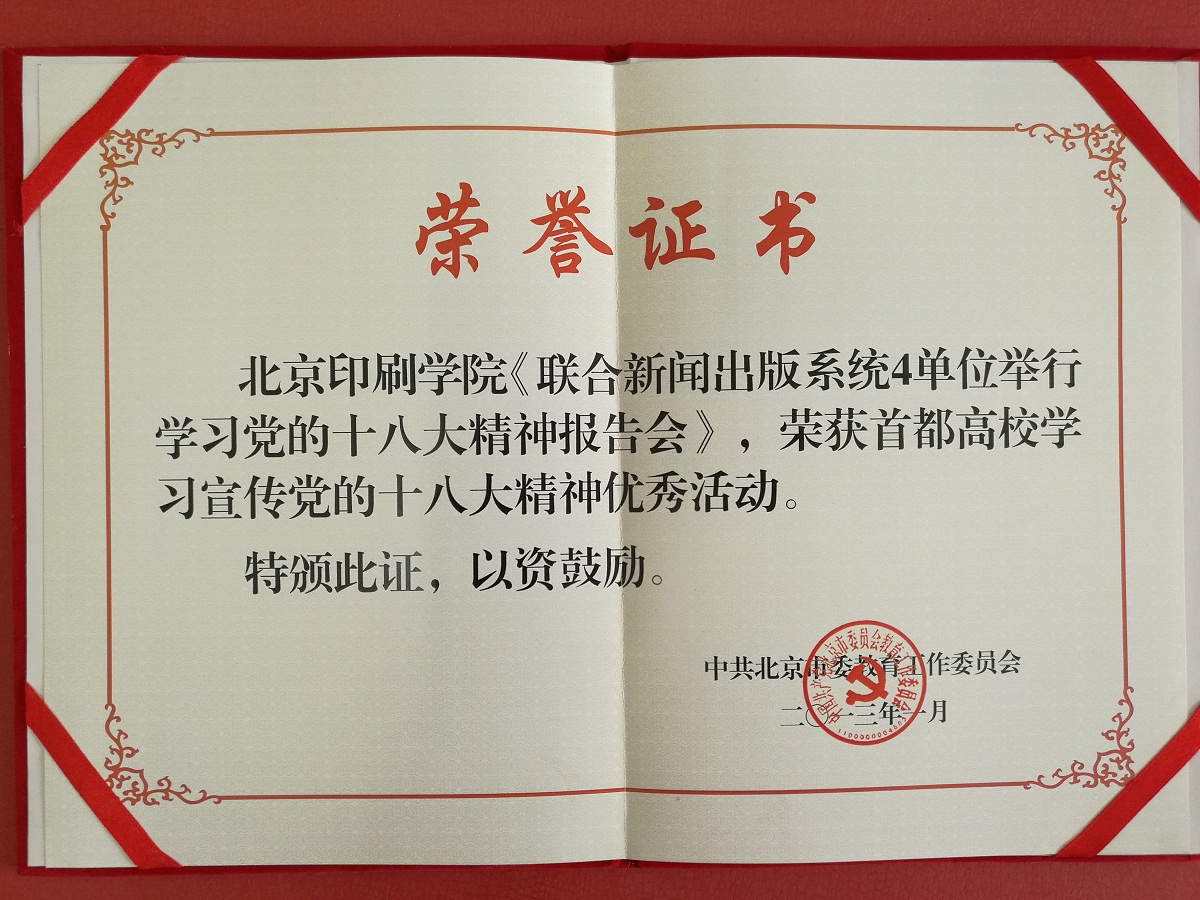 荣誉证书
北京印刷学院《联合新闻出版系统4单位举行
学习党的十八大精神报告会》，荣获首都高校学
习宣传党的十八大精神优秀活动。
特颁此证，以资鼓励。
中共北京市委教育工作委员会
二〇一三年一月
中国共产党北京市委员会教育工作委员会